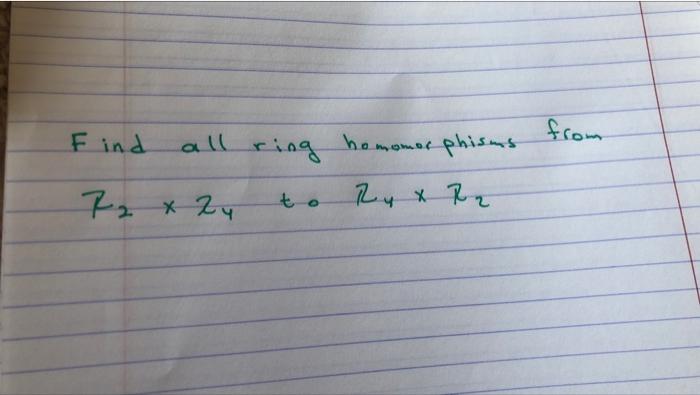 Find all ring homomorphisms from
Z2 x Z4 to Z4 x Z2